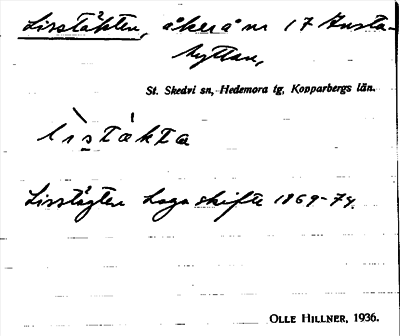 Lisstäkten, åker å nr 17 Gusta-
hyttan,
St. Skedvi sn, Hedemora tg, Kopparbergs län.
lìstàkta
Lisstägten Laga skifte 1869-74.
OLLE HILLNER, 1936.